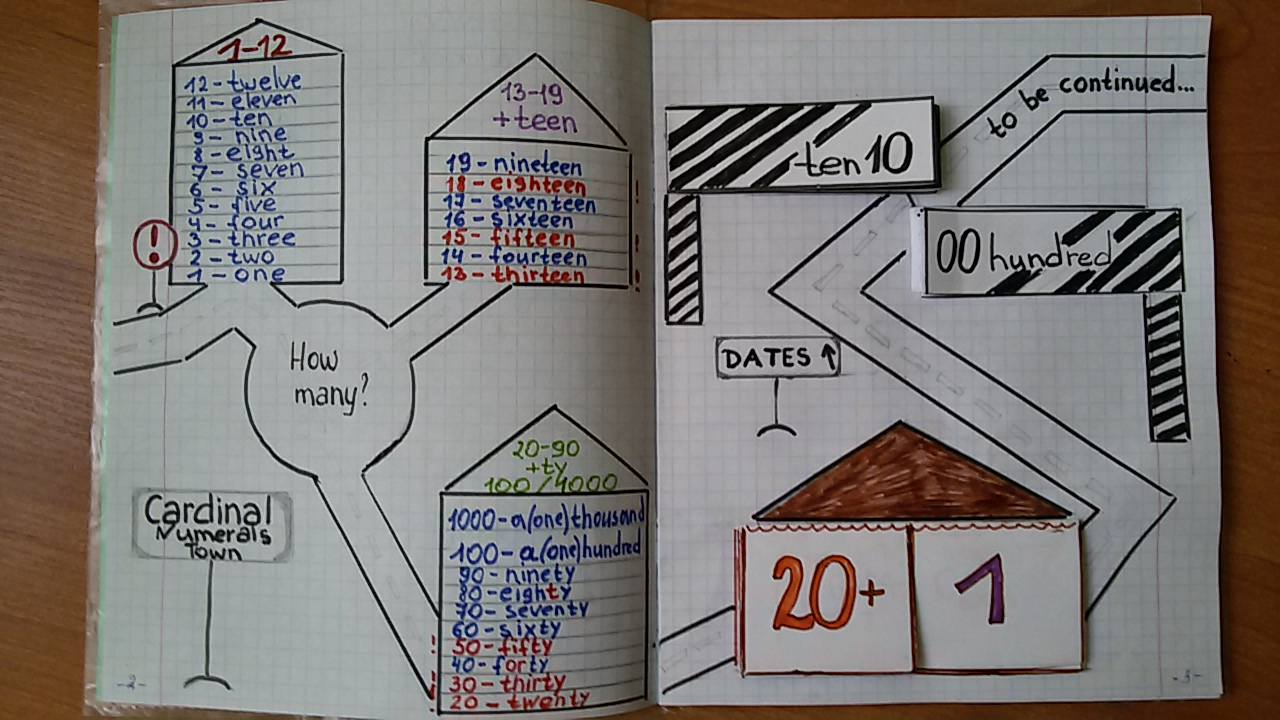 1-12
12 - twelve
11 - eleven
10 - ten
9 - nine
8 - eight
7 - seven
6 - six
5 - five
4 - four
3 - three
2 - two
1 - one
!
13-19
+ teen
19 - nineteen
18 - eighteen !
17 - seventeen
16 - sixteen
15 - fifteen !
14 - fourteen
13 - thirteen !
How
many?
Cardinal
Numerals
Town
20-90
+ty
100/1000
1000 - a(one)thousand
100 - a(one)hundred
90 - ninety
80 - eighty
70 - seventy
60 - sixty
! 50 - fifty
40 - forty
! 30 - thirty
! 20 - twenty
-2-
to be continued...
ten 10
00 hundred
DATES ↑
20+ 1
-3-